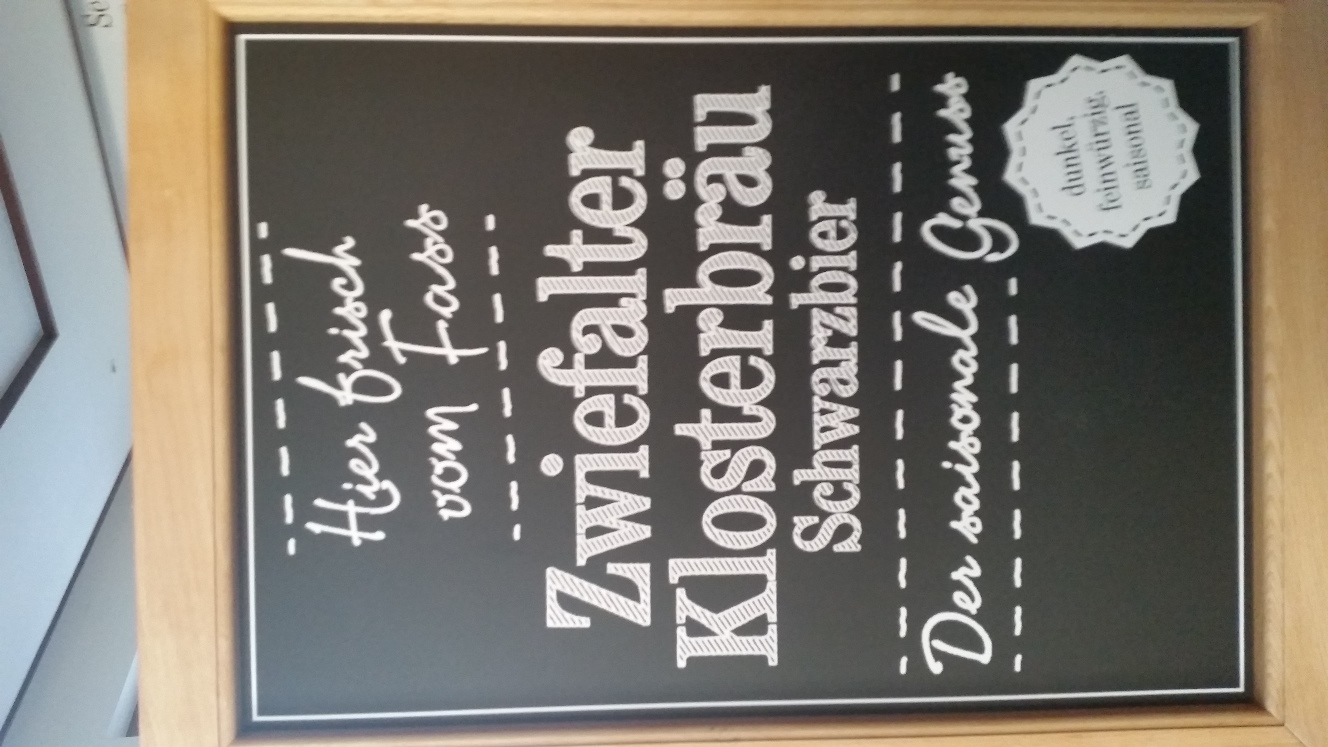 Hier frisch
vom Fass
Zwiefalter
Klosterbräu
Schwarzbier
Der saisonale Genuss
dunkel,
feinwürzig,
saisonal